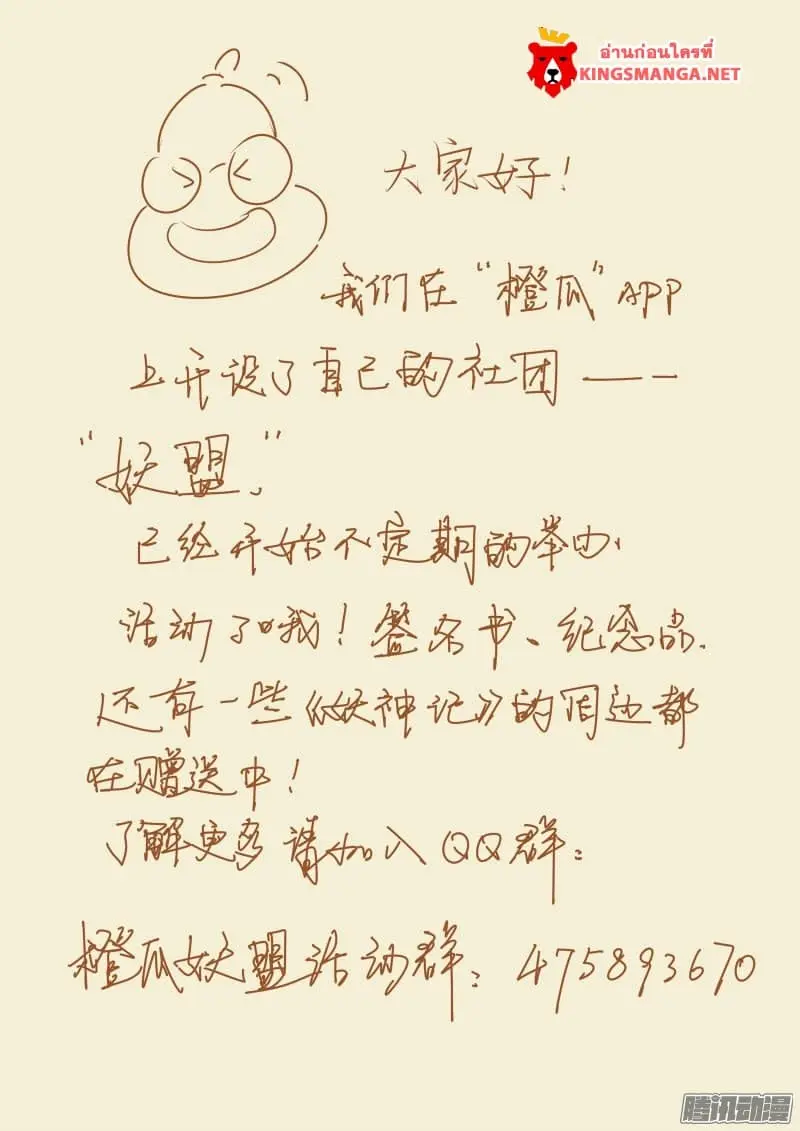 อ่านก่อนใครที่
KINGSMANGA.NET
大家好！
我们在“橙瓜”APP
上开设了自己的社团——
“妖盟”
已经开始不定期的举办
活动了哦！签名书、纪念品.
还有一些《妖神记》的周边都
在赠送中！
了解更多请加入QQ群：
橙瓜妖盟活动群：475893670
腾讯动漫